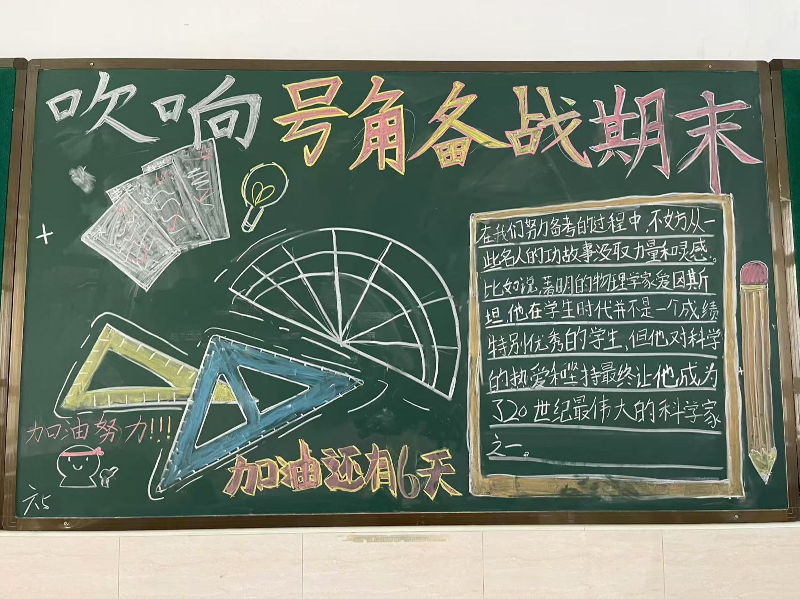 吹响号角备战期末
在我们努力备考的过程中,不妨从一
些名人的功故事没取力量和灵感。
比如说,著明的物理学家爱因斯
坦,他在学生时代并不是一个成绩
特别优秀的学生,但他对科学
的热爱和坚持最终让他成为
了20世纪最伟大的科学家
之一。
加油努力!!!
加油还有6天
六5